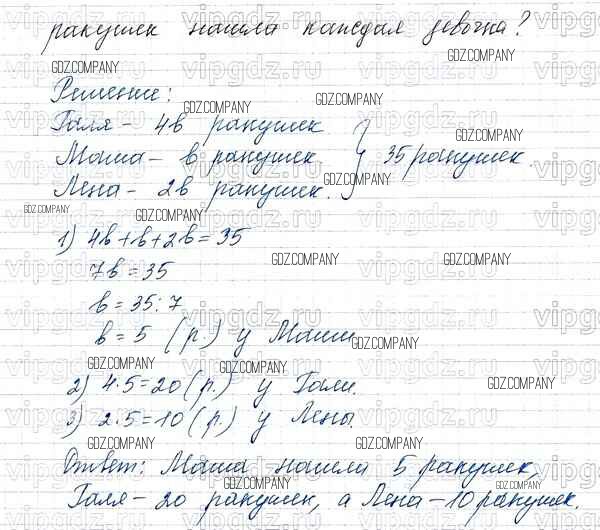 ракушек нашла каждая девочка?
Решение:
Галя - 4в ракушек
Маша - в ракушек. } 35 ракушек.
Лена - 2в ракушек.
1) 4в+в+2в=35
7в=35
в=35:7
в=5 (р.) у Маши.
2) 4·5=20 (р.) у Гали.
3) 2·5=10 (р.) у Лены.
Ответ: Маша нашла 5 ракушек,
Галя - 20 ракушек, а Лена - 10 ракушек.
GDZ.COMPANY
vipgdz.ru